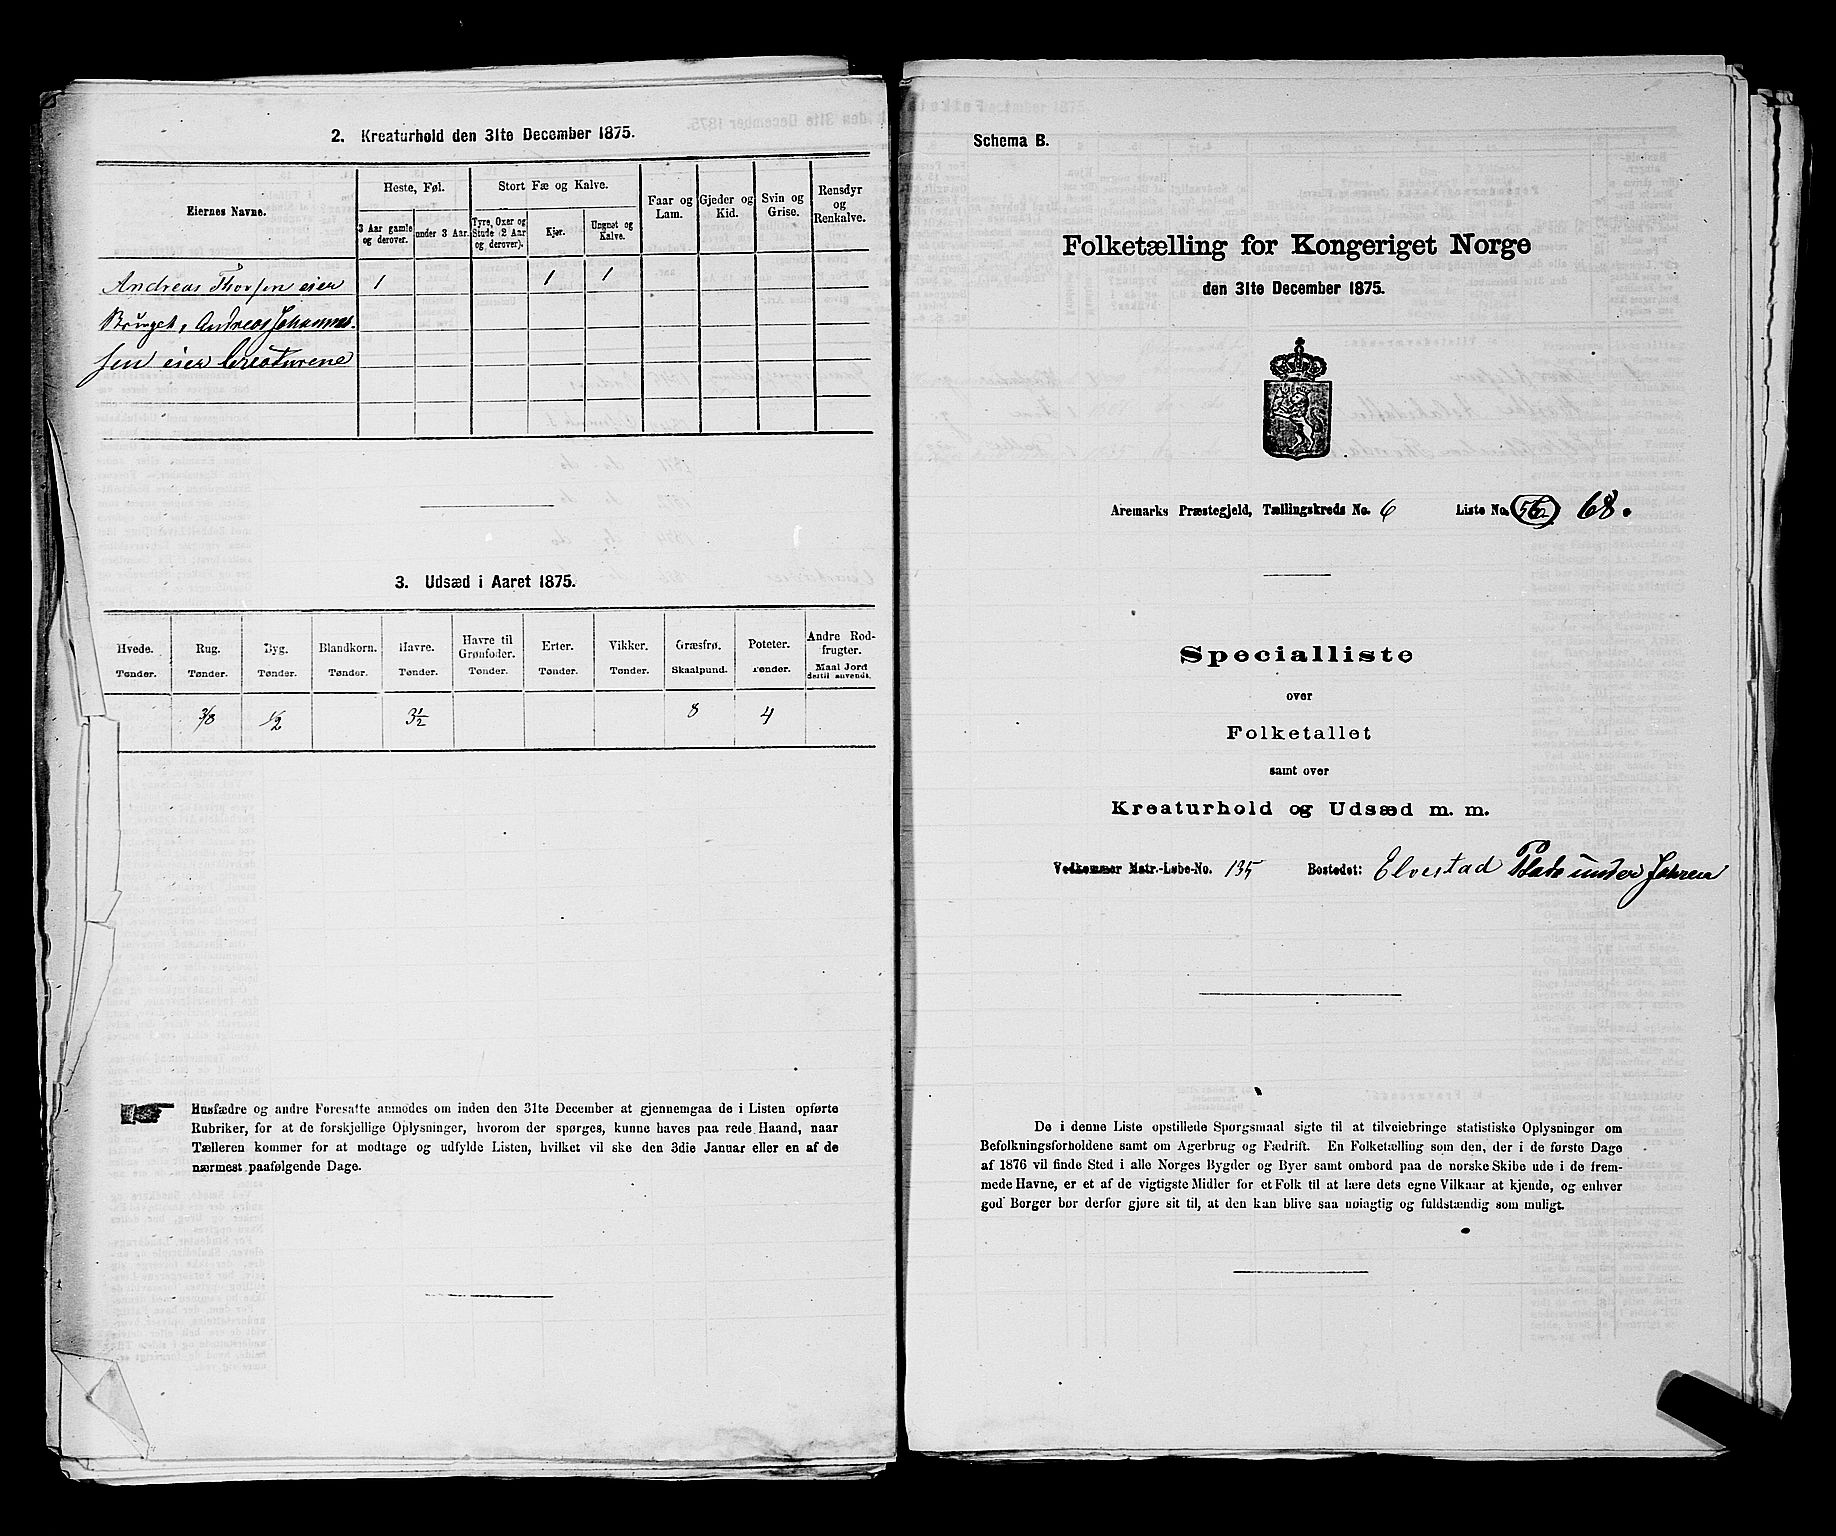 2. Kreaturhold den 31te December 1875.
Eiernes Navne.
Heste, Føl.
Stort Fæ og Kalve.
Faar og Lam.
Gjeder og Kid.
Svin og Grise.
Rensdyr og Renkalve.
3 Aar gamle og derover.
under 3 Aar.
Tyre, Oxer og Stude (2 Aar og derover).
Kjør.
Ungnøt og Kalve.
Andreas Thorsen eier 1 1 1
Bruget, Andreas Johannes-
sen eier Creaturene
3. Udsæd i Aaret 1875.
Hvede. Rug. Byg. Blandkorn. Havre. Havre til Grønfoder. Erter. Vikker. Græsfrø. Poteter. Andre Rodfrugter.
Tønder. Tønder. Tønder. Tønder. Tønder. Tønder. Tønder. Tønder. Skaalpund. Tønder. Maal Jord dertil anvendt.
3/8 1/2 3 1/2 8 4
Husfædre og andre Foresatte anmodes om inden den 31te December at gjennemgaa de i Listen opførte
Rubriker, for at de forskjellige Oplysninger, hvorom der spørges, kunne haves paa rede Haand, naar
Tælleren kommer for at modtage og udfylde Listen, hvilket vil ske den 3die Januar eller en af de
nærmest paafølgende Dage.
Schema B.
Folketælling for Kongeriget Norge
den 31te December 1875.
Aremarks Præstegjeld, Tællingskreds No. 6 Liste No. 68.
Specialliste
over
Folketallet
samt over
Kreaturhold og Udsæd m. m.
Vedkommer Matr.-Løbe-No. 135 Bostedet: Elvestad Plads under
De i denne Liste opstillede Spørgsmaal sigte til at tilveiebringe statistiske Oplysninger om
Befolkningsforholdene samt om Agerbrug og Fædrift. En Folketælling som den, der i de første Dage
af 1876 vil finde Sted i alle Norges Bygder og Byer samt ombord paa de norske Skibe ude i de frem-
mede Havne, er et af de vigtigste Midler for et Folk til at lære dets egne Vilkaar at kjende, og enhver
god Borger bør derfor gjøre sit til, at den kan blive saa nøiagtig og fuldstændig som muligt.